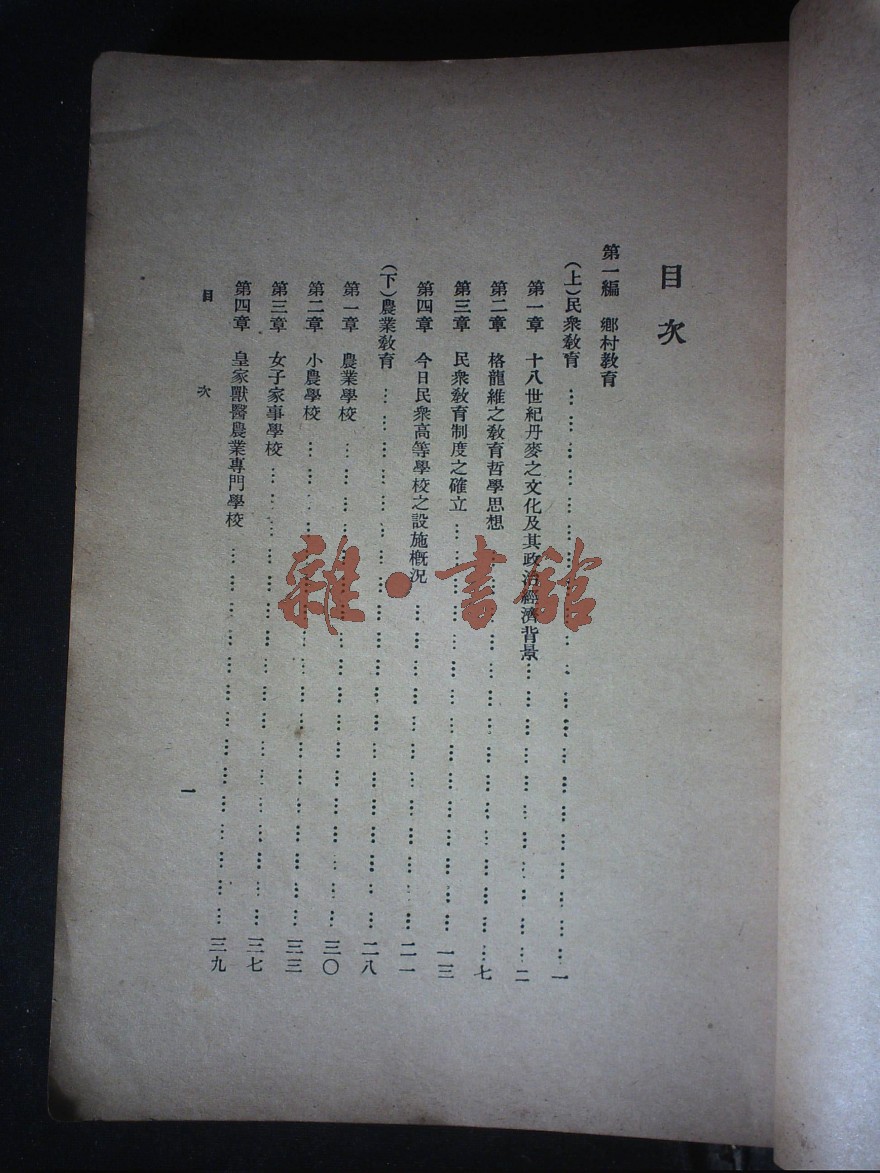 目次
第一編 鄉村教育
(上)民衆教育……………………………………………………一
第一章 十八世紀丹麥之文化及其政治經濟背景……………………………二
第二章 格龍維之教育哲學思想……………………………………七
第三章 民衆教育制度之確立……………………………………一三
第四章 今日民衆高等學校之設施概況……………………………二一
(下)農業教育……………………………………………………二八
第一章 農業學校………………………………………………三〇
第二章 小農學校………………………………………………三三
第三章 女子家事學校……………………………………………三七
第四章 皇家獸醫農業專門學校……………………………………三九
目次
一
雜·書館